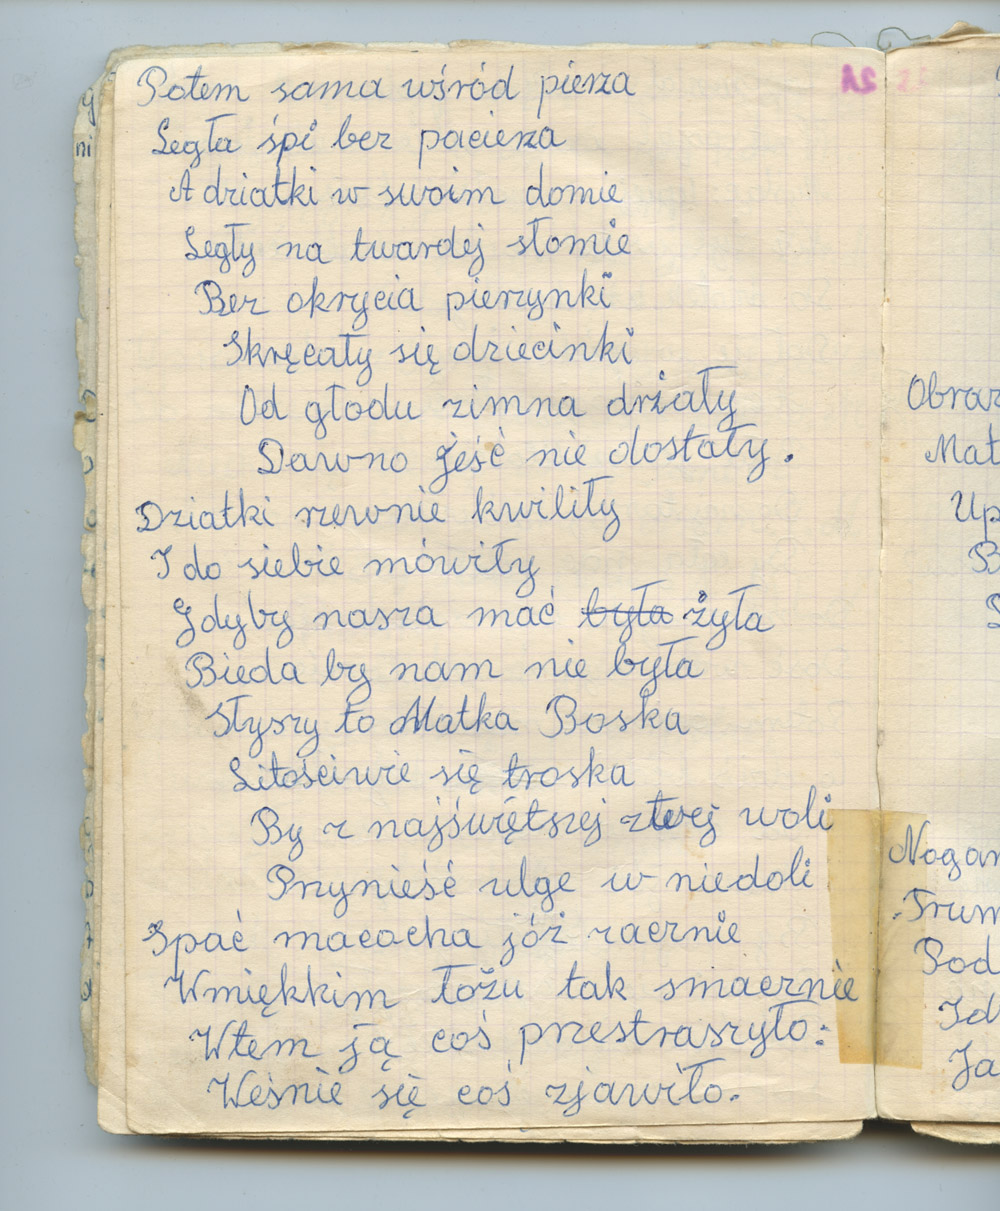 Potem sama wśród pierza
Legła śpi bez pacierza
A dziatki w swoim domie
Legły na twardej słomie
Bez okrycia pierzynki
Skręcały się dziecinki
Od głodu zimna drżały
Dawno jeść nie dostały.
Dziatki rzewnie kwiliły
I do siebie mówiły
Gdyby nasza mać była żyła
Bieda by nam nie była
Słyszy to Matka Boska
Litościwie się troska
By z najświętszej woli
Przynieść ulge w niedoli
Spać macocha jóż zacznie
Wmiękkim łożu tak smacznie
Wtem ją coś przestraszyło:
Weśnie się coś zjawiło.
Obraz
Mat
Up
B
Nogam
Trum
Pod
Id
Ja